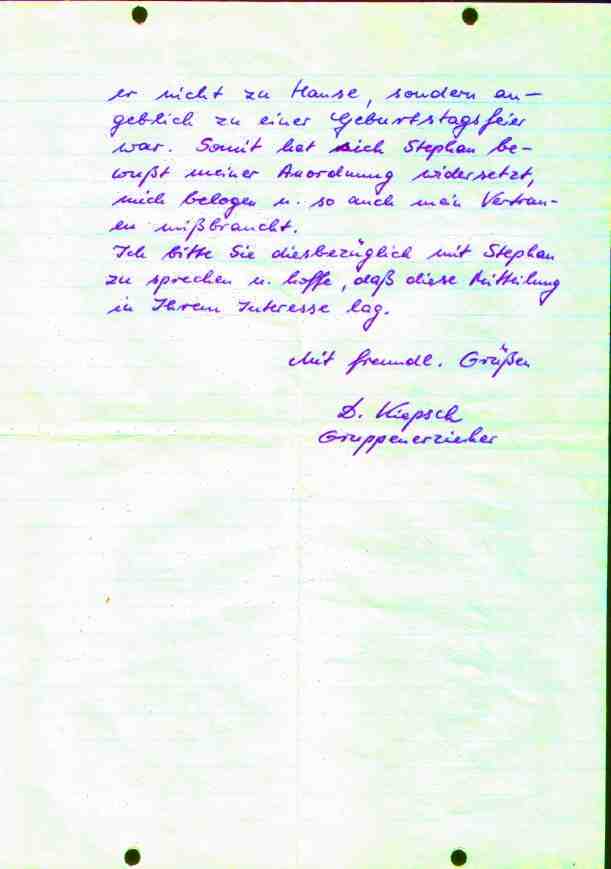 er nicht zu Hause, sondern an-
geblich zu einer Geburtstagsfeier
war. Somit hat sich Stephan be-
wußt meiner Anordnung widersetzt,
mich belogen u. so auch mein Vertrau-
en mißbraucht.
Ich bitte Sie diesbezüglich mit Stephan
zu sprechen u. hoffe, daß diese Mitteilung
in Ihrem Interesse lag.
Mit freundl. Grüßen
D. Kiepsch
Gruppenerzieher